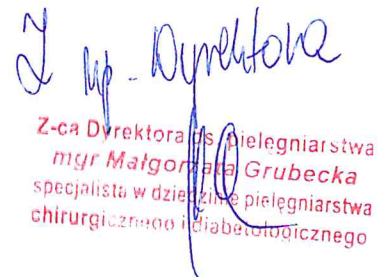 Z up. Dyrektora
Z-ca Dyrektora ds. pielęgniarstwa
mgr Małgorzata Grubecka
specjalista w dziedzinie pielęgniarstwa
chirurgicznego i diabetologicznego